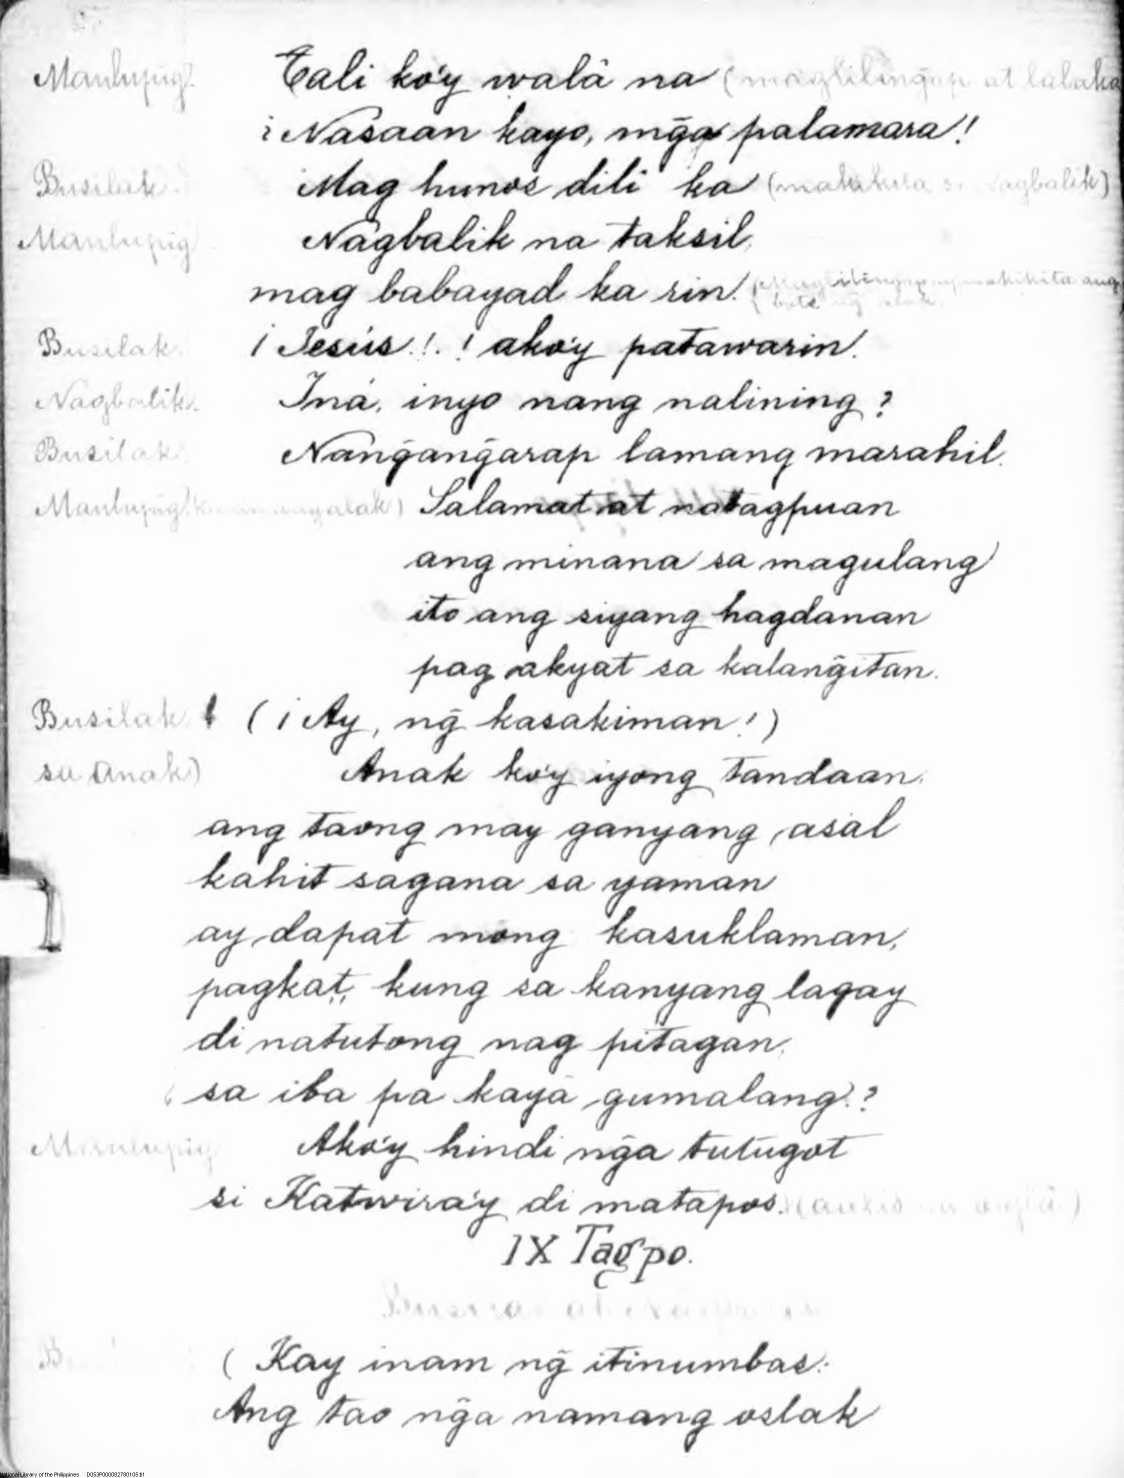 Manlupig. Tali ko'y walâ na (maglilingap at lalaka
¡Nasaan kayo, mg̃a palamara!
Busilak. Mag hunos dili ka (makikita si Nagbalik)
Manlupig Nagbalik na taksil,
mag babayad ka rin. makikita ang
bote ng alak.
Busilak. ¡Jesús!.! ako'y patawarin.
Nagbalik. Iná, inyo nang nalining?
Busilak. Nang̃ang̃arap lamang marahil.
Manlupig. Salamat at natagpuan
ang minana sa magulang
ito ang siyang hagdanan
pag akyat sa kalang̃itan.
Busilak (¡Ay, ng̃ kasakiman!)
sa Anak) Anak ko'y iyong tandaan.
ang taong may ganyang asal
kahit sagana sa yaman
ay dapat mong kasuklaman,
pagkat, kung sa kanyang lagay
di natutong nag pitagan,
sa iba pa kayâ gumalang.?
Manlupig Ako'y hindi ng̃a tutugot
si Katwira'y di matapos.
IX Tagpo.
(Kay inam ng̃ itinumbas.
Ang tao ng̃a namang oslak
National Library of the Philippines